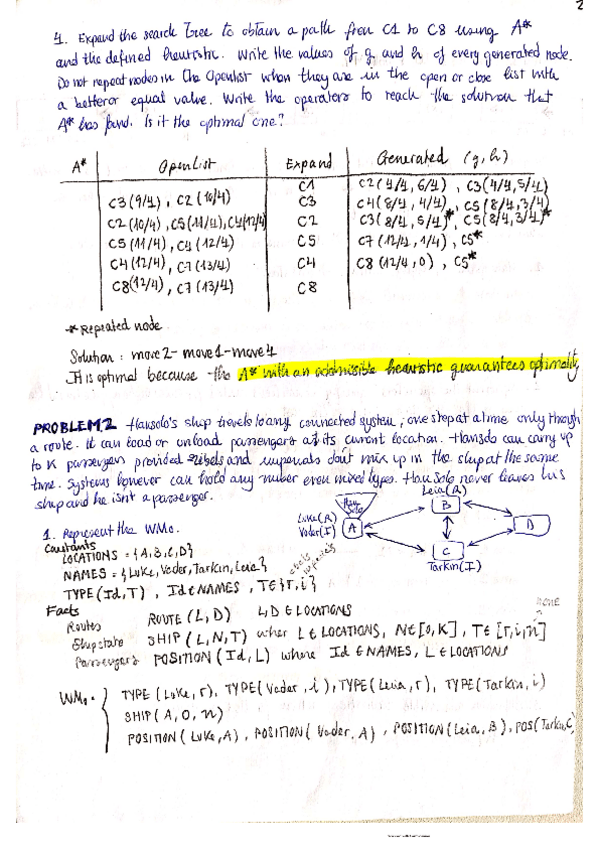 2
4. Expand the search tree to obtain a path from C1 to C8 using A*
and the defined heuristic. Write the values of g and h of every generated node.
Do not repeat nodes in the OpenList when they are in the open or close list with
a better or equal value. Write the operators to reach the solution that
A* has found. Is it the optimal one?
A* OpenList Expand Generated (g,h)
C1 C2(4/4, 6/4), C3(4/4, 5/4)
C3(9/4), C2(10/4) C3 C4(8/4, 4/4), C5(8/4, 3/4)
C2(10/4), C5(11/4), C4(12/4) C2 C3(8/4, 5/4)*, C5(8/4, 3/4)*
C5(11/4), C4(12/4) C5 C7(12/4, 1/4), C5*
C4(12/4), C7(13/4) C4 C8(12/4, 0), C5*
C8(12/4), C7(13/4) C8
* Repeated node
Solution: move2 - move1 - move4
It is optimal because the A* with an admissible heuristic guarantees optimality
PROBLEM 2 Hansolo's ship travels to any connected system, one step at a time only though
a route. It can load or unload passengers at its current location. Hansolo can carry up
to K passengers provided rebels and imperials don't mix up in the ship at the same
time. Systems however can hold any number even mixed types. Han Solo never leaves his
ship and he isn't a passenger.
Han Solo
Luke(R)
Vader(I)
A
Leia(R)
B
D
C
Tarkin(I)
1. Represent the WM0.
Constants
LOCATIONS = {A,B,C,D}
NAMES = {Luke, Vader, Tarkin, Leia}
rebels imperials
TYPE(Id,T), Id ∈ NAMES, T ∈ {r,i}
Facts
Routes ROUTE(L,D) L,D ∈ LOCATIONS
none
Shipstate SHIP(L,N,T) wher L ∈ LOCATIONS, N ∈ [0,K], T ∈ [r,i,n]
Passengers POSITION(Id,L) where Id ∈ NAMES, L ∈ LOCATIONS
WM0 = { TYPE(Luke,r), TYPE(Vader,i), TYPE(Leia,r), TYPE(Tarkin,i)
SHIP(A,0,n)
POSITION(Luke,A), POSITION(Vader,A), POSITION(Leia,B), POS(Tarkin,C)